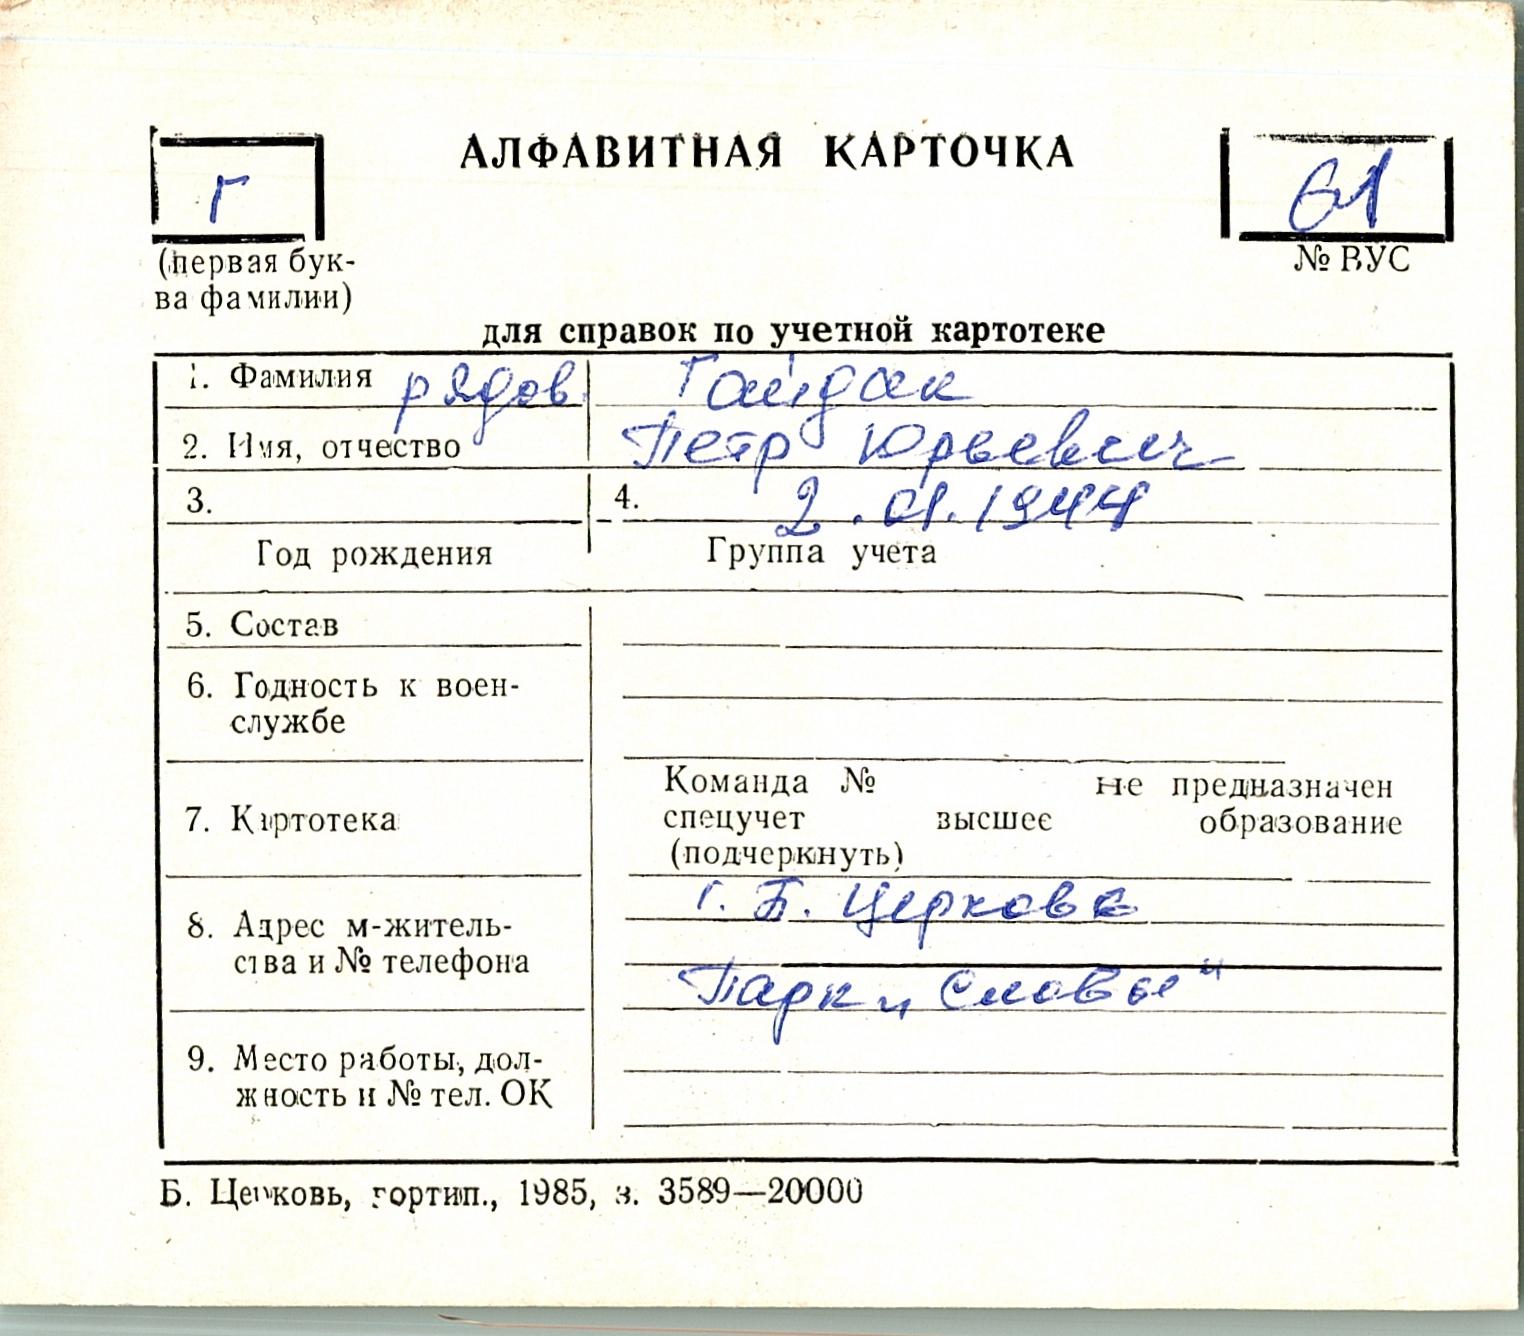 АЛФАВИТНАЯ КАРТОЧКА
Г
61
(первая бук-
ва фамилии)
№ ВУС
для справок по учетной картотеке
1. Фамилия рядов. Гайдак
2. Имя, отчество Петр Юрьевич
3. 4. 2.01.1944
Год рождения Группа учета
5. Состав
6. Годность к воен-
службе
7. Картотека
Команда № не предназначен
спецучет высшее образование
(подчеркнуть)
8. Адрес м-житель-
ства и № телефона
г. Б. Церковь
Парк „Славы"
9. Место работы, дол-
жность и № тел. ОК
Б. Церковь, гортип., 1985, з. 3589—20000